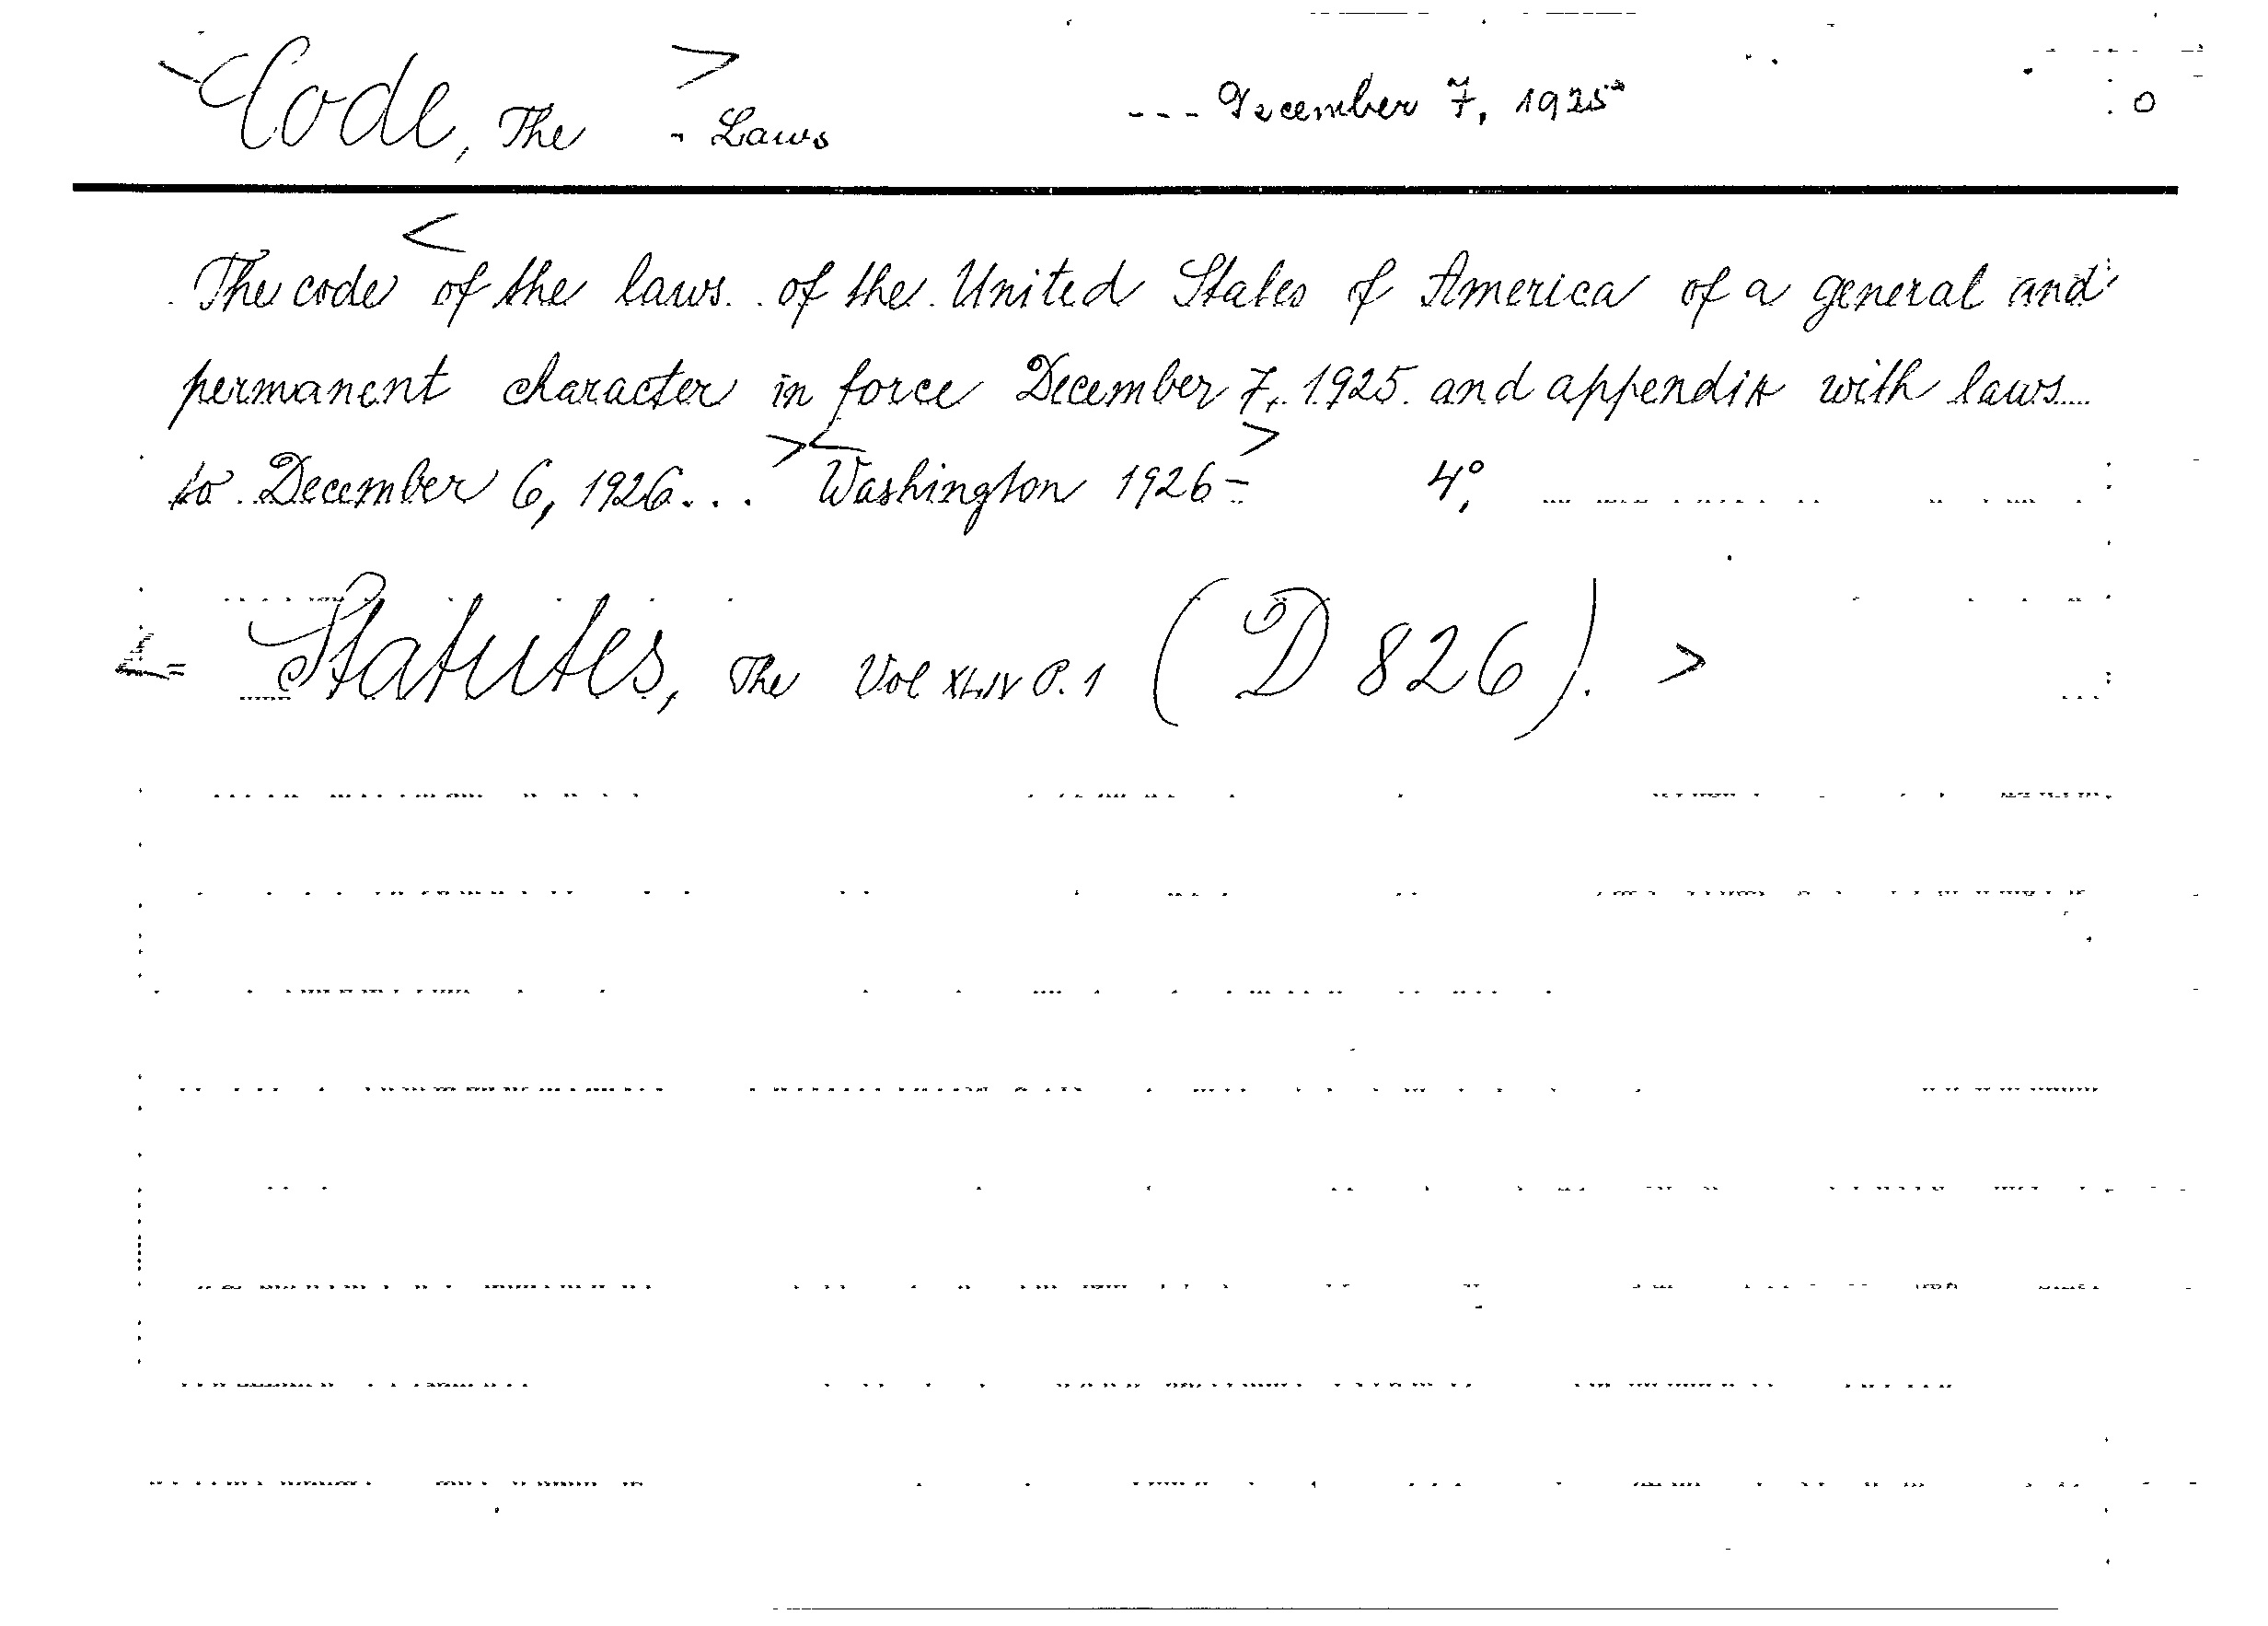 <Code, The > - Laws --- December 7, 1925 0
The code < of the laws.. of the United States of America of a general and
permanent character in force December 7, 1925. and appendix with laws....
to December 6, 1926... >< Washington 1926-> 4°.
<= Statutes, The Vol XLIV P. 1 (D 826). >